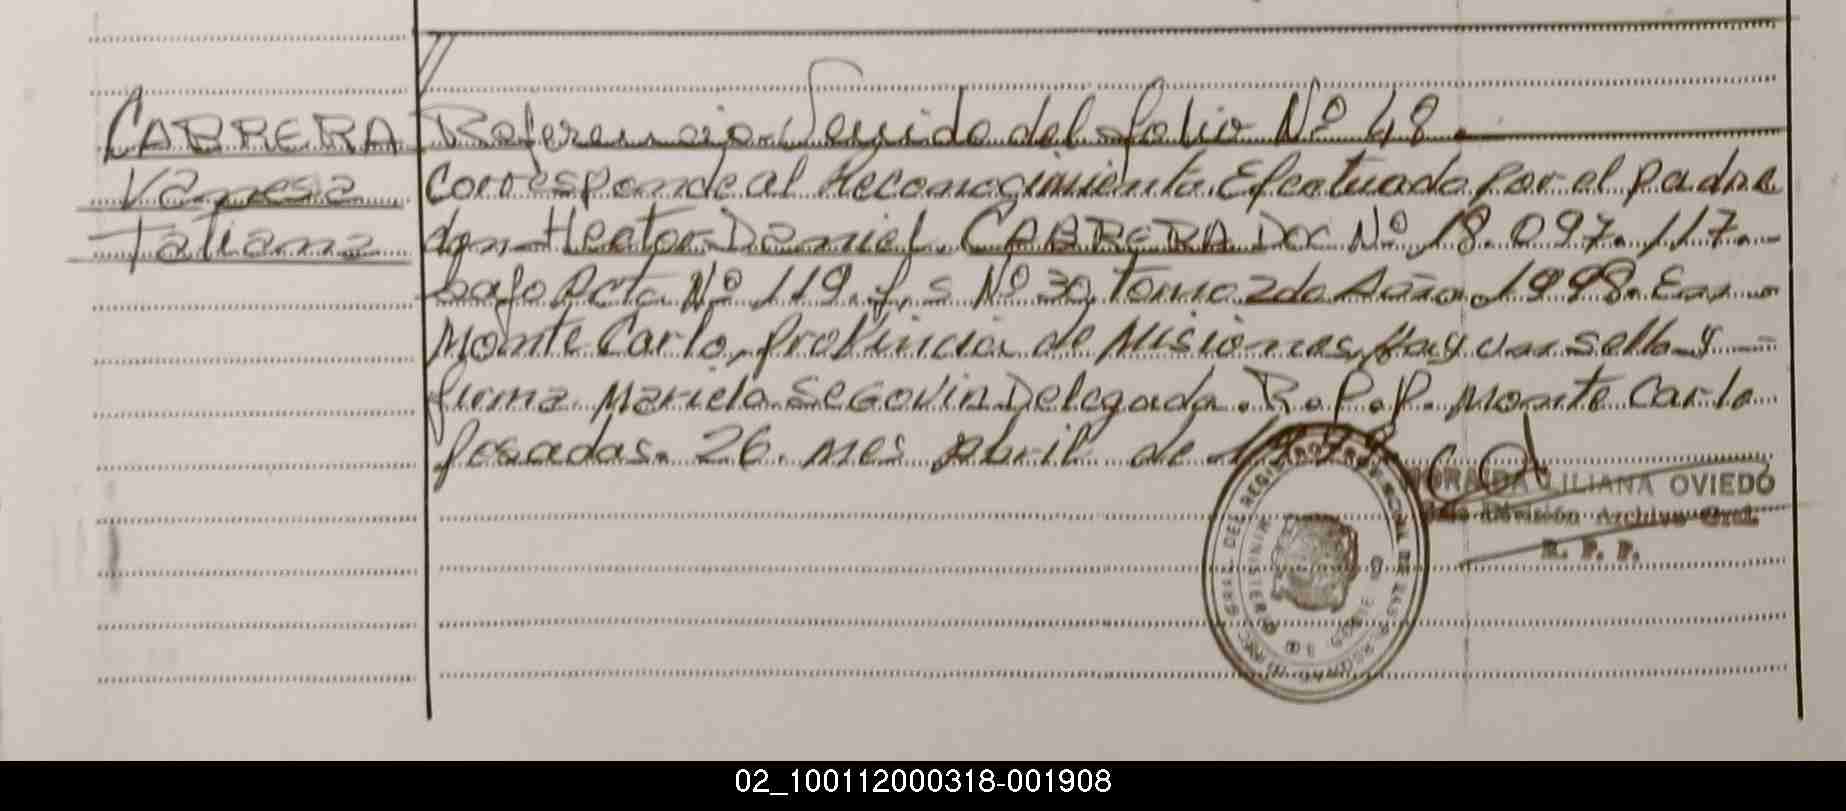 CABRERA
Vanesa
Tatiana
Referencia Venida del folio Nº 48.
Corresponde al Reconocimiento Efectuado por el padre
don Hector Daniel CABRERA Doc Nº 18.097.117.
bajo Acta Nº 119. f,s Nº 30, Tomo 2do Año, 1998. En
Monte Carlo, Provincia de Misiones, hay un sello y
firma Mariela SEGOVIA Delegada. R.P.P. Monte Carlo
Posadas. 26. mes Abril de 1999.
LILIANA OVIEDO
División Archivo Gral.
R. P. P.
02_100112000318-001908